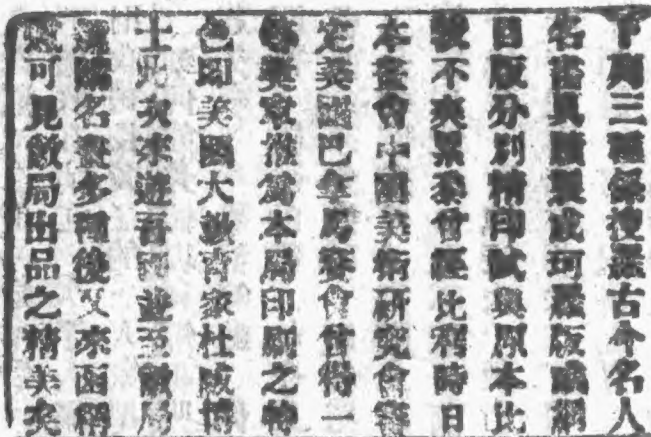 下列三種係搜羅古今名人
名畫真蹟製成珂羅版或銅
目版分別精印試與原本比
較不爽累黍曾經比利時日
本畫會中國美術研究會審
定美國巴拿馬賽會曾得一
等獎章推為本局印刷之特
色即美國大教育家杜威博
士此次來遊吾國並至敝局
選購名畫多種後又來函稱
可見敝局出品之精美矣